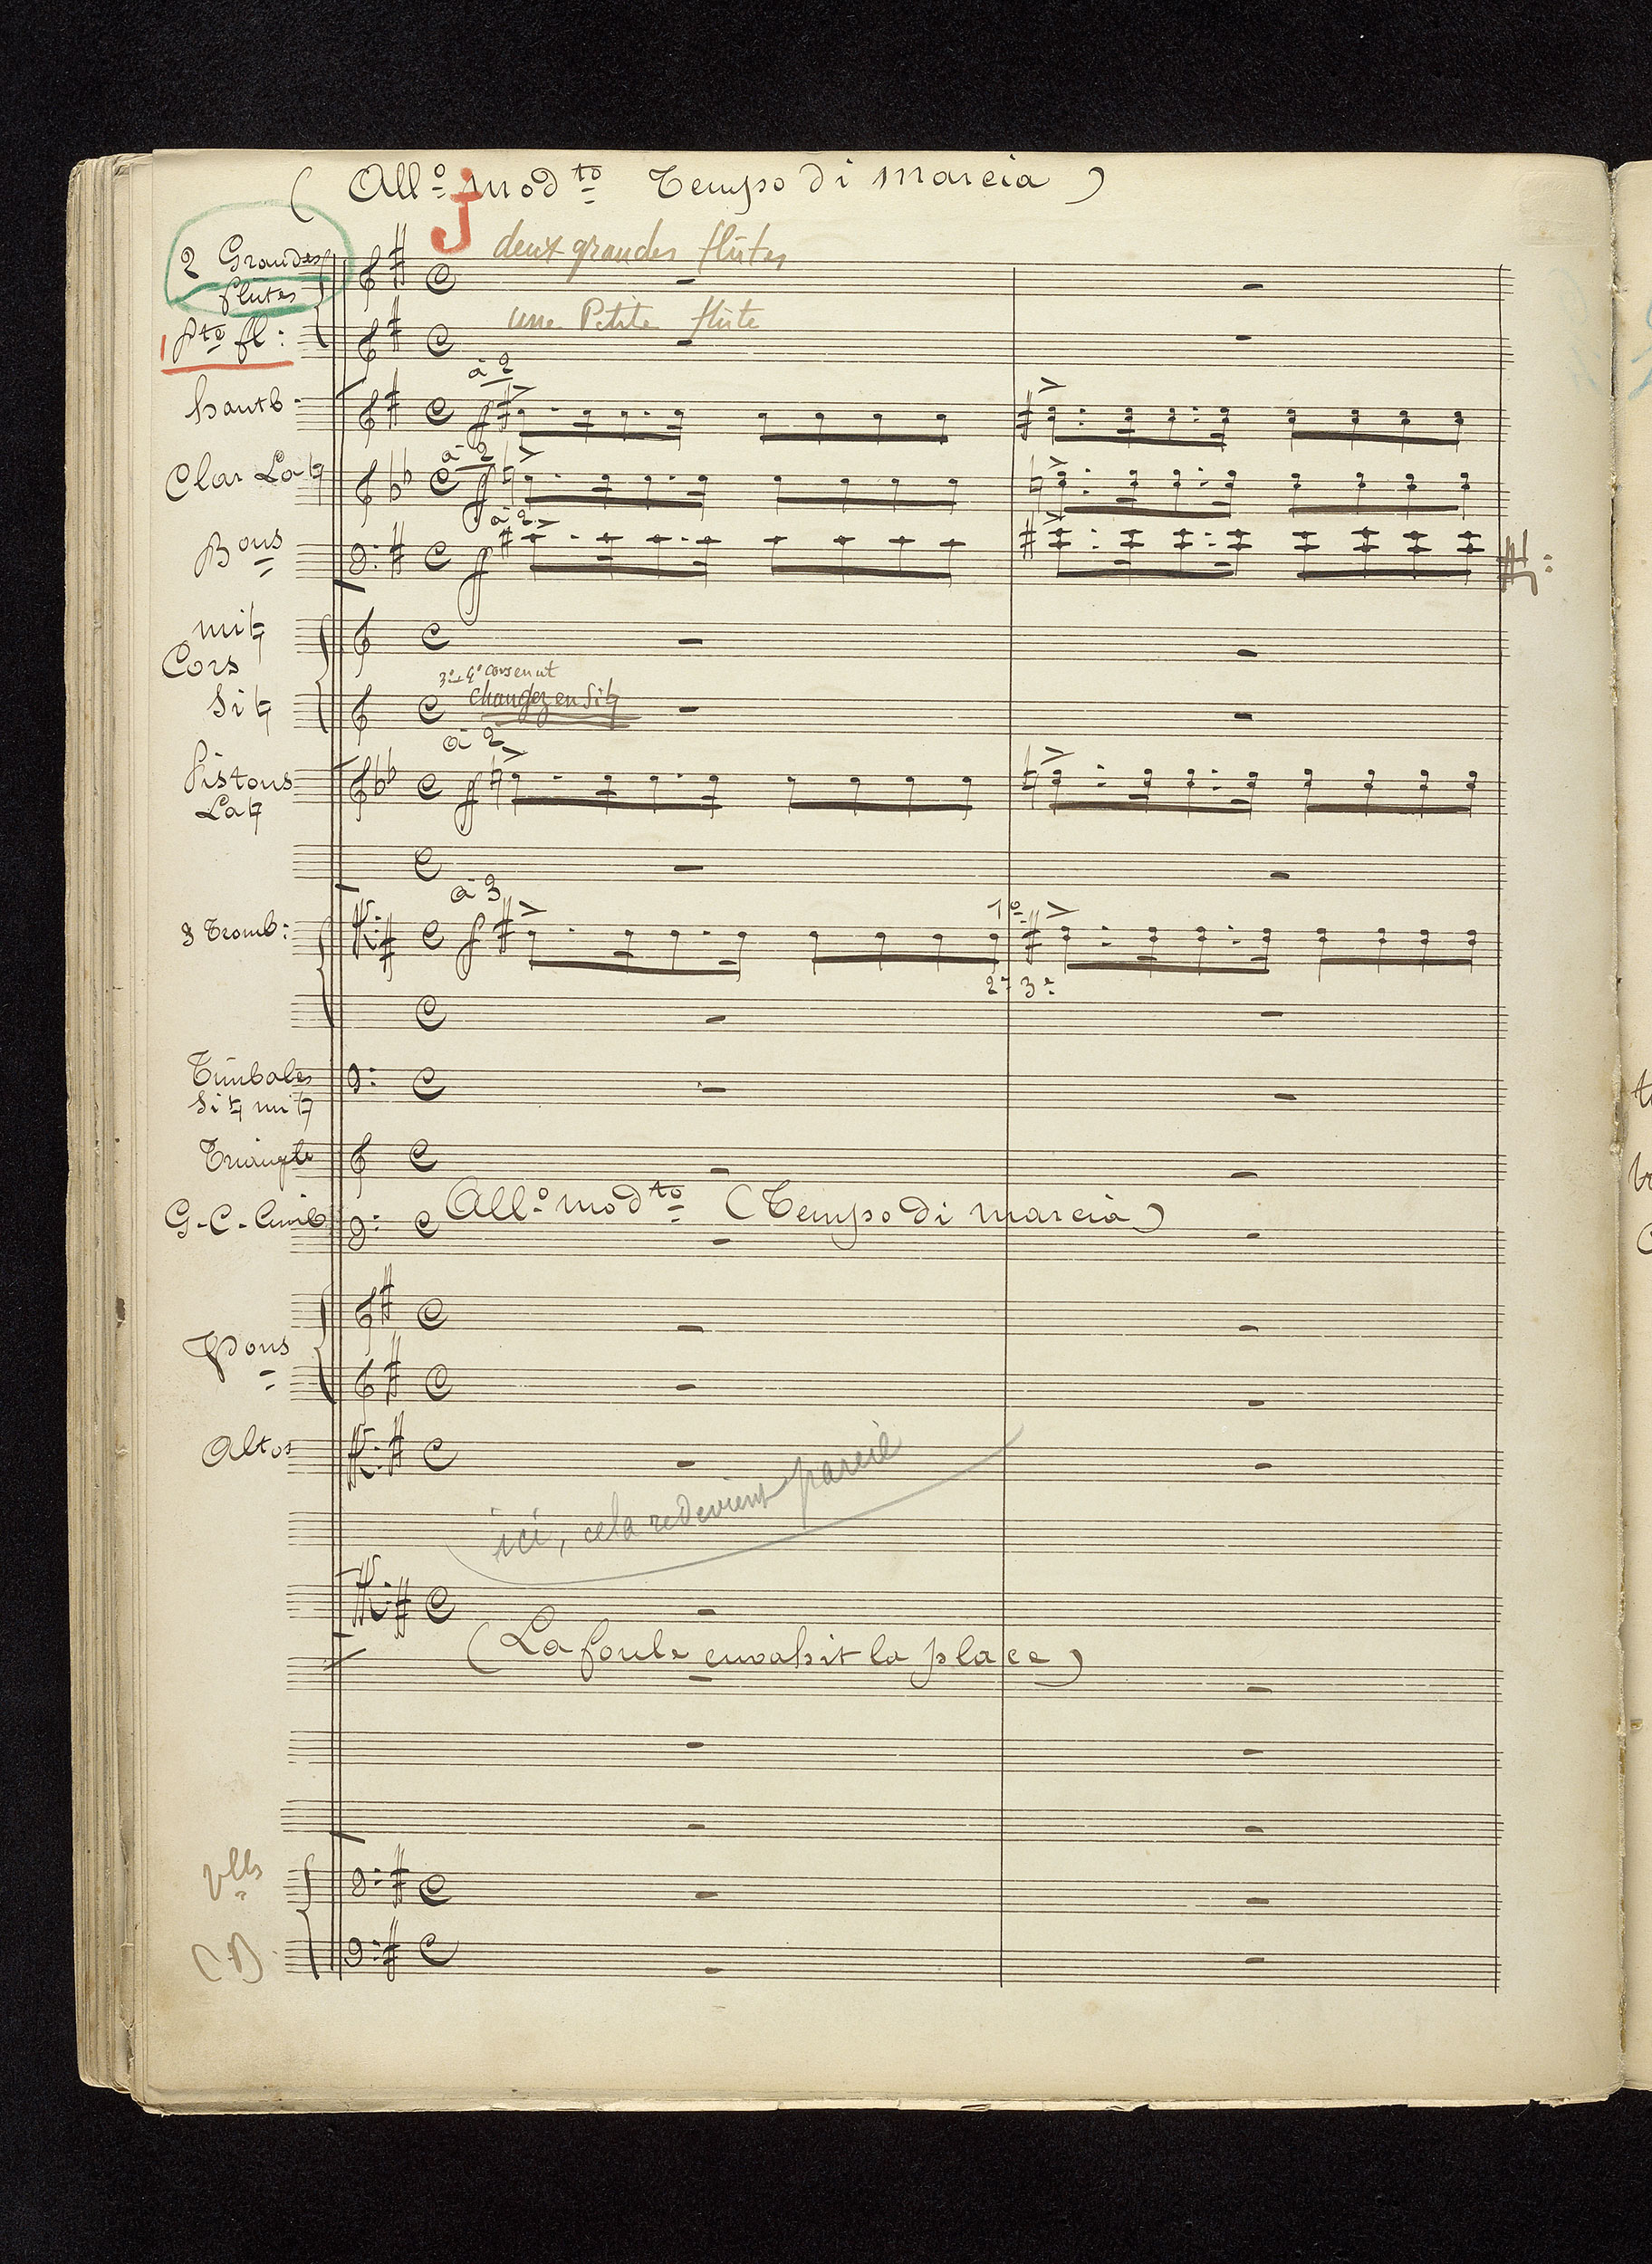 ( All.º modto Tempo di marcia )
J
2 Grandes
flutes
deux grandes flûtes
1 pte fl:
une Petite flûte
à 2
hautb.
ff
à 2
Clar La♮
ff
à 2
Bons
ff
mi♮
Cors
3e 4e cors en ut
changez en Si♮
Si♮
à 2
Pistons
La♮
ff
à 3
1º
3 Tromb:
f
2º 3e
Timbales
Si♮ mi♮
Triangle
All.º modto (Tempo di marcia)
G-C-Cimb
Vons
Altos
ici, cela redevient pareil
(La foule envahit la place)
Vlls
CB.